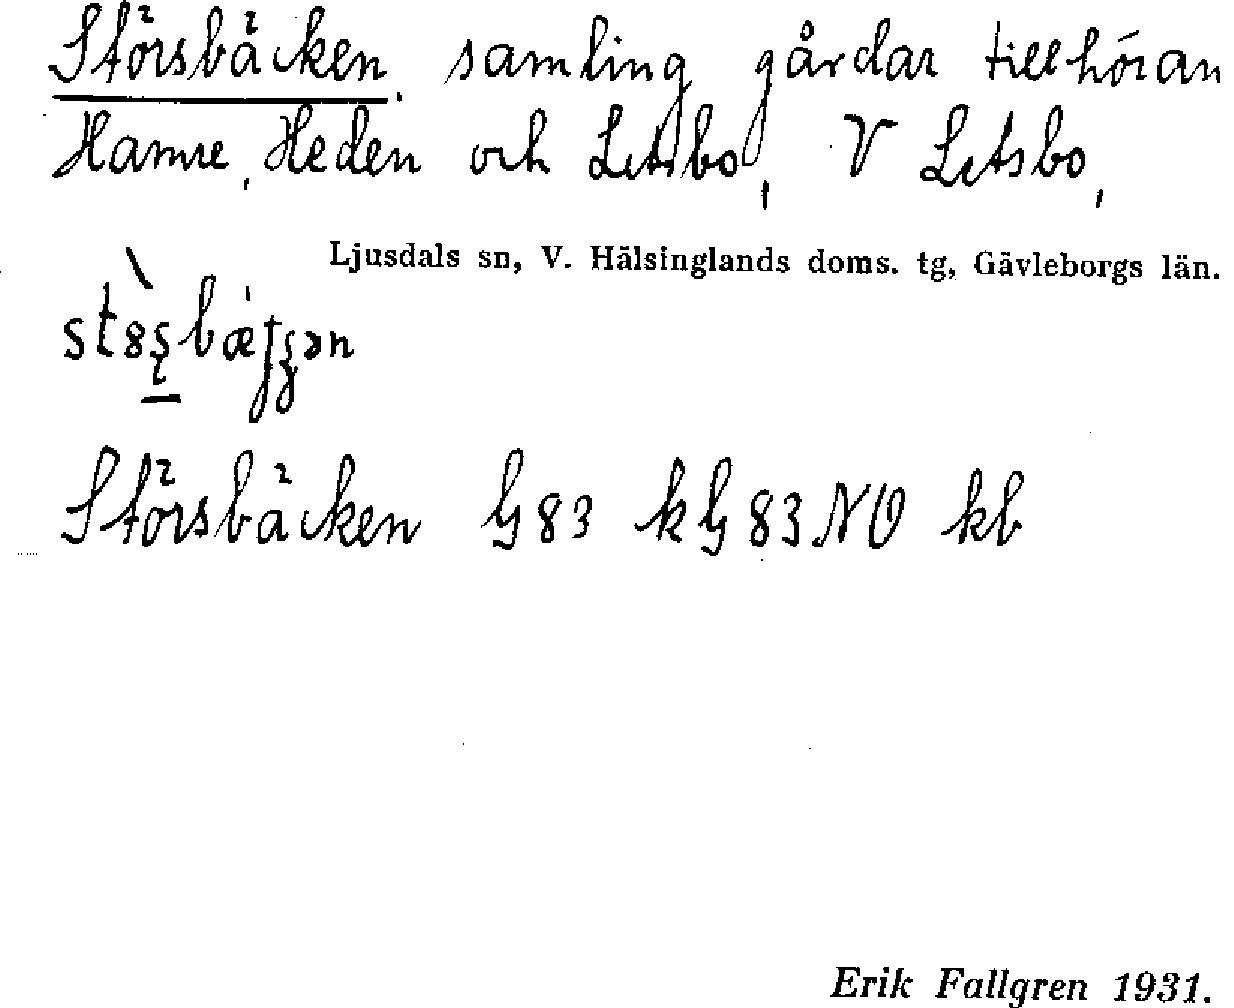 Störsbäcken, samling gårdar tillhöran
Hamre, Heden och Letsbo, V Letsbo,
Ljusdals sn, V. Hälsinglands doms. tg, Gävleborgs län.
Störsbäcken G 83 kG 83 NO kb
Erik Fallgren 1931.